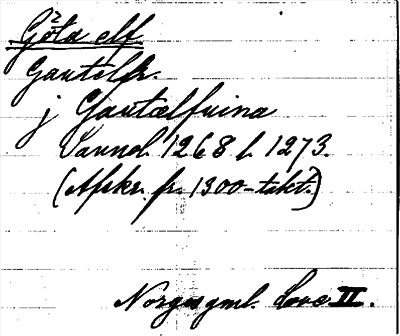 Göta elf.
Gautelfr.
j Gautælfuina
Sannol. 1268 l. 1273.
(Afskr. fr. 1300-talet.)
Norges gml. Love II.